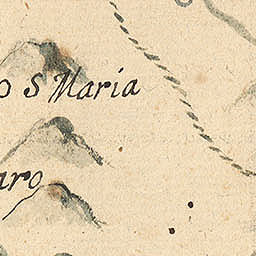 o S Maria
aro